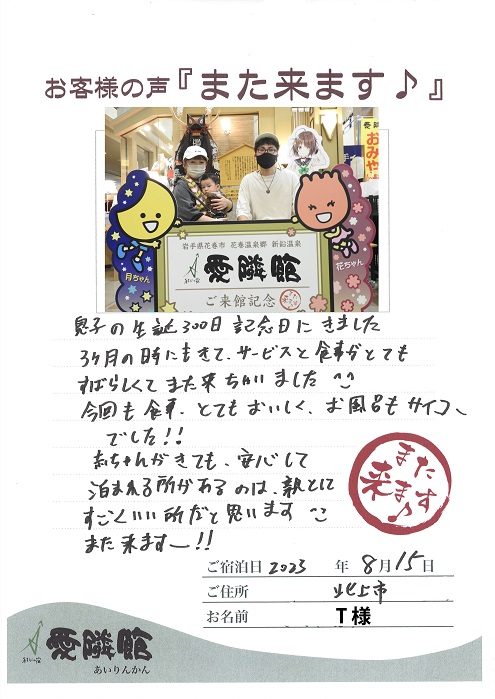 お客様の声『また来ます♪』
おみや
月ちゃん
花ちゃん
岩手県花巻市 花巻温泉郷 新鉛温泉
愛隣館
ご来館記念
息子の生誕300日記念日にきました
3ヶ月の時にもきて、サービスと食事がとても
すばらしくてまた来ちゃいました^^
今回も食事、とてもおいしく、お風呂もサイコー
でした!!
赤ちゃんがきても、安心して
泊まれる所があるのは、親として
すごくいい所だと思います^^
また来ますー!!
また
来ます♪
ご宿泊日 2023 年 8月15日
ご住所 北上市
お名前 T様
愛隣館
あいりんかん